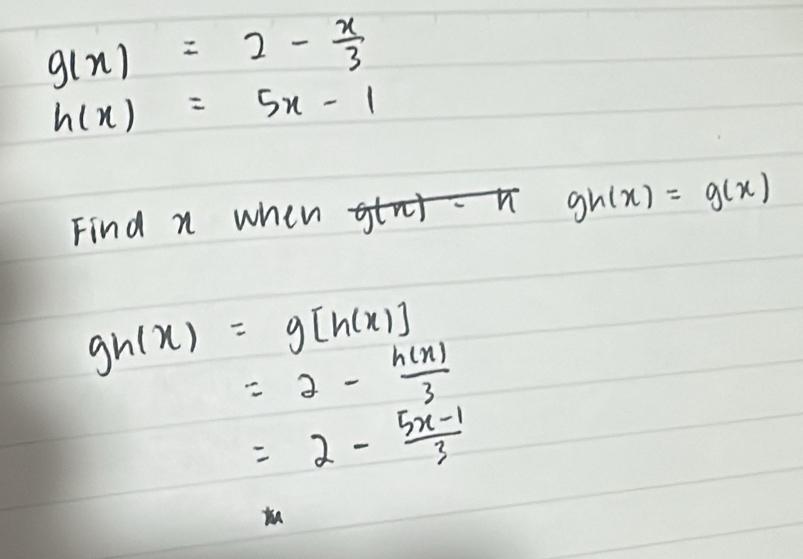 g(x) = 2 - x/3
h(x) = 5x - 1
Find x when gh(x) = g(x)
gh(x) = g[h(x)]
= 2 - h(x)/3
= 2 - 5x-1/3